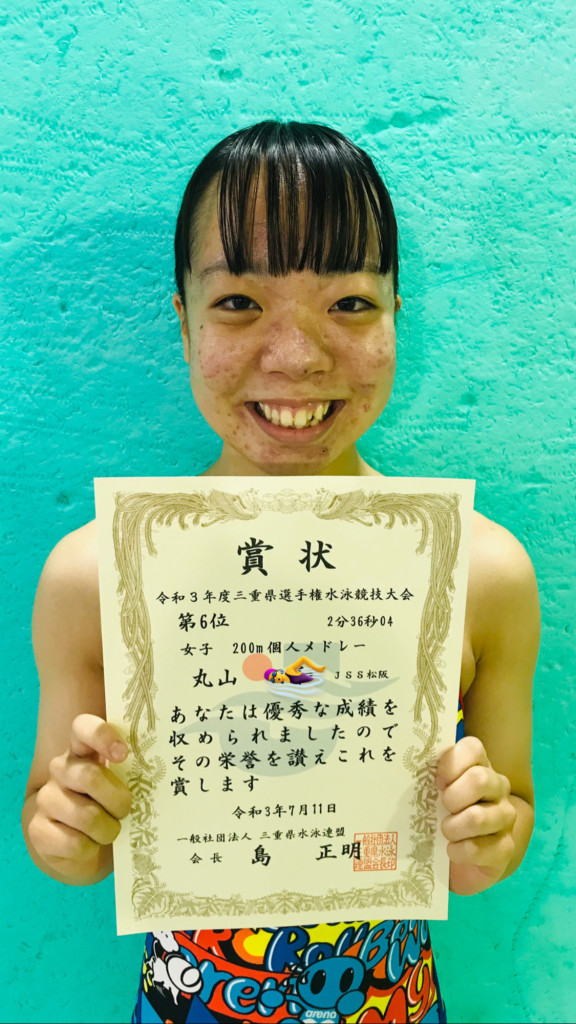 賞状
令和3年度三重県選手権水泳競技大会
第6位 2分36秒04
女子 200m個人メドレー
丸山 JSS松阪
あなたは優秀な成績を
収められましたので
その栄誉を讃えこれを
賞します
令和3年7月11日
一般社団法人 三重県水泳連盟
会長 島 正明
arena